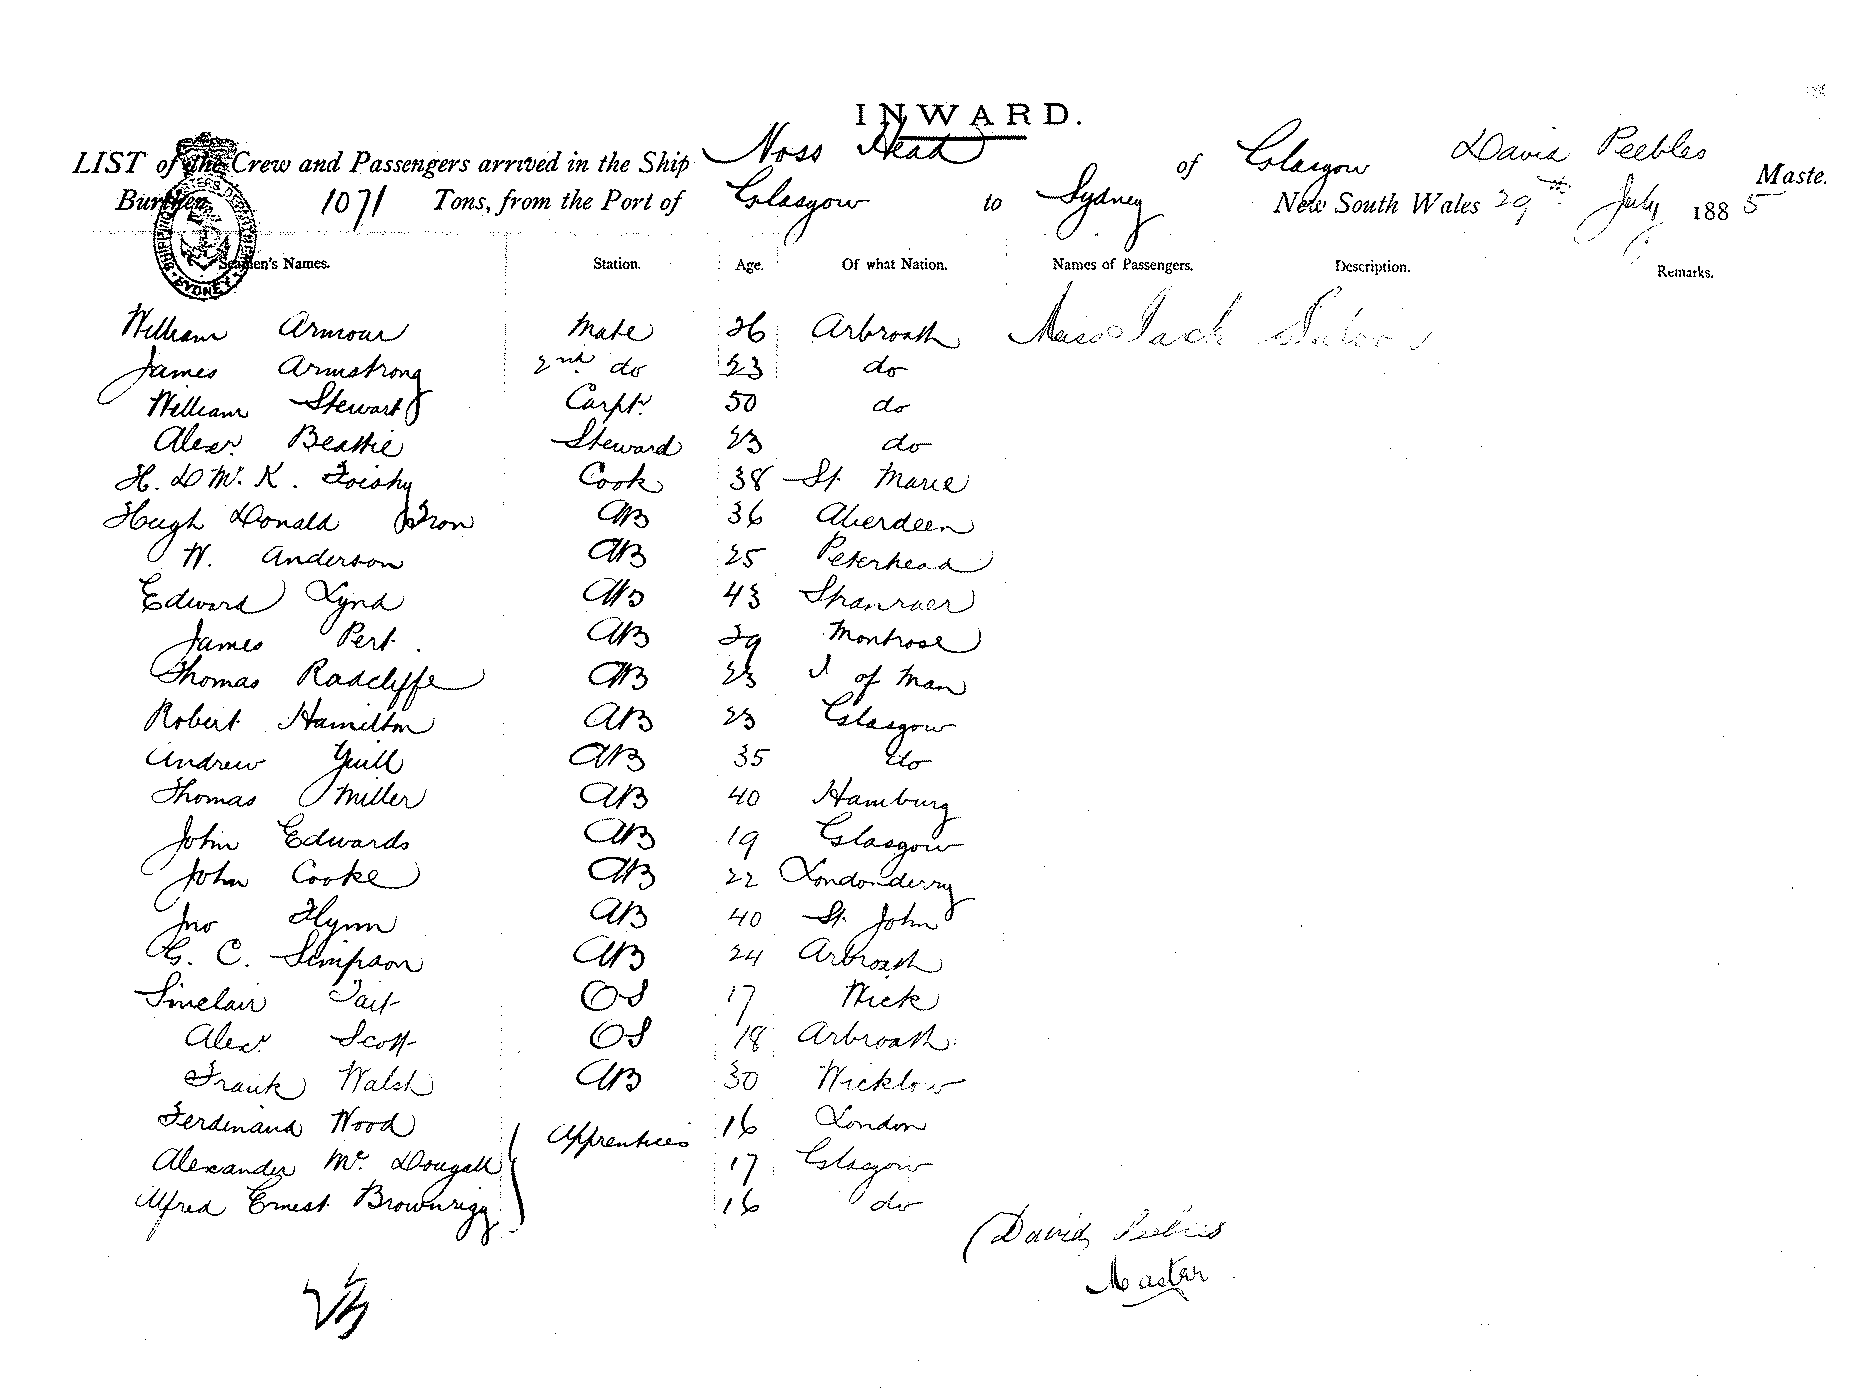 INWARD.
LIST of the Crew and Passengers arrived in the Ship Noss Head of Glasgow David Peebles Maste.
Burthen 1071 Tons, from the Port of Glasgow to Sydney New South Wales 29th July 1885
Seamen's Names. Station. Age. Of what Nation. Names of Passengers. Description. Remarks.
William Armour Mate 26 Arbroath Miss Jack Saloon
James Armstrong 2nd do 23 do
William Stewart Carptr. 50 do
Alexr. Beattie Steward 23 do
H. D Mc. K. Cook 38 St Marie
Hugh Donald AB 36 Aberdeen
W. Anderson AB 25 Peterhead
Edward Lynd AB 43 Stranraer
James Pert AB 29 Montrose
Thomas Radcliffe AB 23 I of Man
Robert Hamilton AB 23 Glasgow
Andrew Yuill AB 35 do
Thomas Miller AB 40 Hamburg
John Edwards AB 19 Glasgow
John Cooke AB 22 Londonderry
Jno Flynn AB 40 St. John
G. C. Simpson AB 24 Arbroath
Sinclair Tait OS 17 Wick
Alexr. Scott OS 18 Arbroath
Frank Walsh AB 30 Wicklow
Ferdinand Wood Apprentices 16 London
Alexander Mc. Dougall 17 Glasgow
Alfred Ernest Brownrigg 16 do
David Peebles
Master
SYDNEY